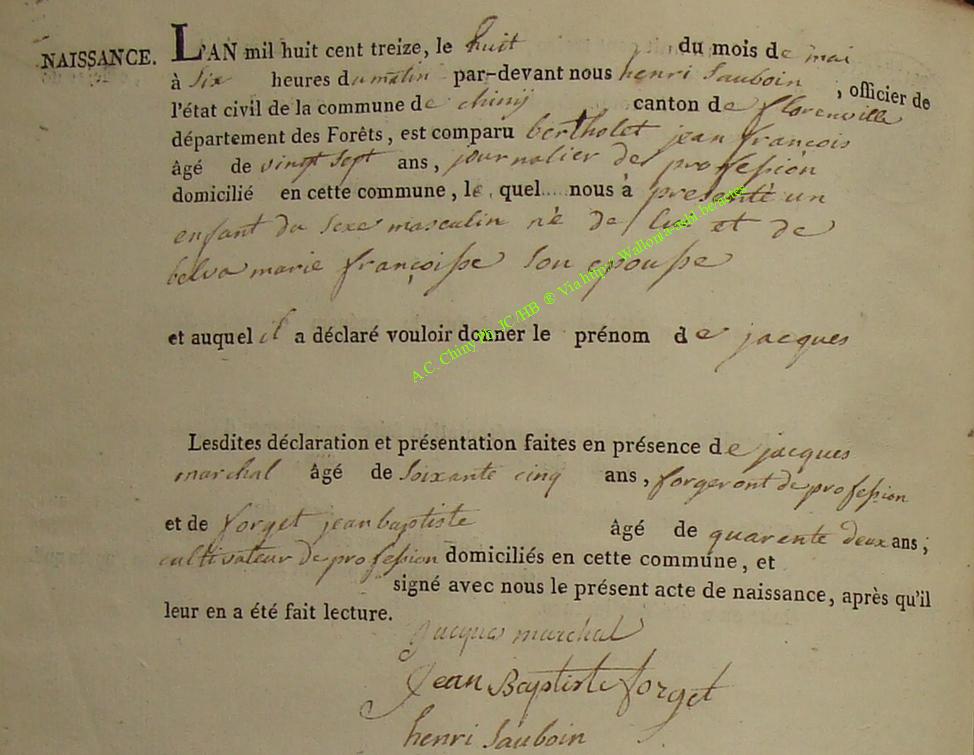 NAISSANCE. L'AN mil huit cent treize, le huit du mois de mai
à six heures du matin par-devant nous henri Sauboin, officier de
l'état civil de la commune de chinij canton de florenville
département des Forêts, est comparu bertholet jean françois
âgé de vingt sept ans, journalier de profession
domicilié en cette commune, le quel nous à presenté un
enfant du sexe masculin né de lui et de
belva marie françoisse son epousse
et auquel il a déclaré vouloir donner le prénom de jacques
Lesdites déclaration et présentation faites en présence de jacques
marchal âgé de soixante cinq ans, forgeront de profession
et de forget jean baptiste âgé de quarente deux ans;
cultivateur de profession domiciliés en cette commune, et
signé avec nous le présent acte de naissance, après qu'il
leur en a été fait lecture.
jacques marchal
Jean Baptiste forget
henri Sauboin
A.C. Chiny Ph JC/HB ® Via http:// Wallonia-asbl.be/actes